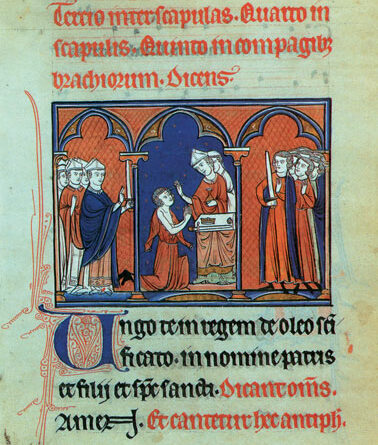 Tercio inter scapulas. Quarto in
scapulis. Quinto in compagibȝ
brachiorum. Dicens.
Ungo te in regem de oleo sc̄i
ficato. in nomine patris
et filii et sp̄s sancti. Dicant om̄s.
Amen. Et cantetur hec antiph̄.